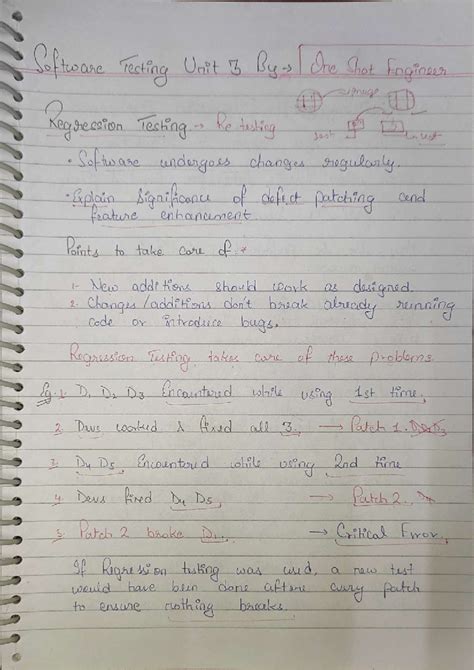 Software Testing Unit 3 By → One Shot Engineer
Regression Testing → Re testing
• Software undergoes changes regularly.
• Explain Significance of defect patching and
feature enhancement.
Points to take care of :
1. New additions should work as designed.
2. Changes/additions don't break already running
code or introduce bugs.
Regression Testing takes care of these problems.
Eg. 1. D1 D2 D3 Encountered while using 1st time.
2. Devs worked & fixed all 3. → Patch 1.
3. D4 D5, Encountered while using 2nd time
4. Devs fixed D4 D5, → Patch 2.
5. Patch 2 broke D1. → Critical Error.
If Regression testing was used, a new test
would have been done after every patch
to ensure nothing breaks.